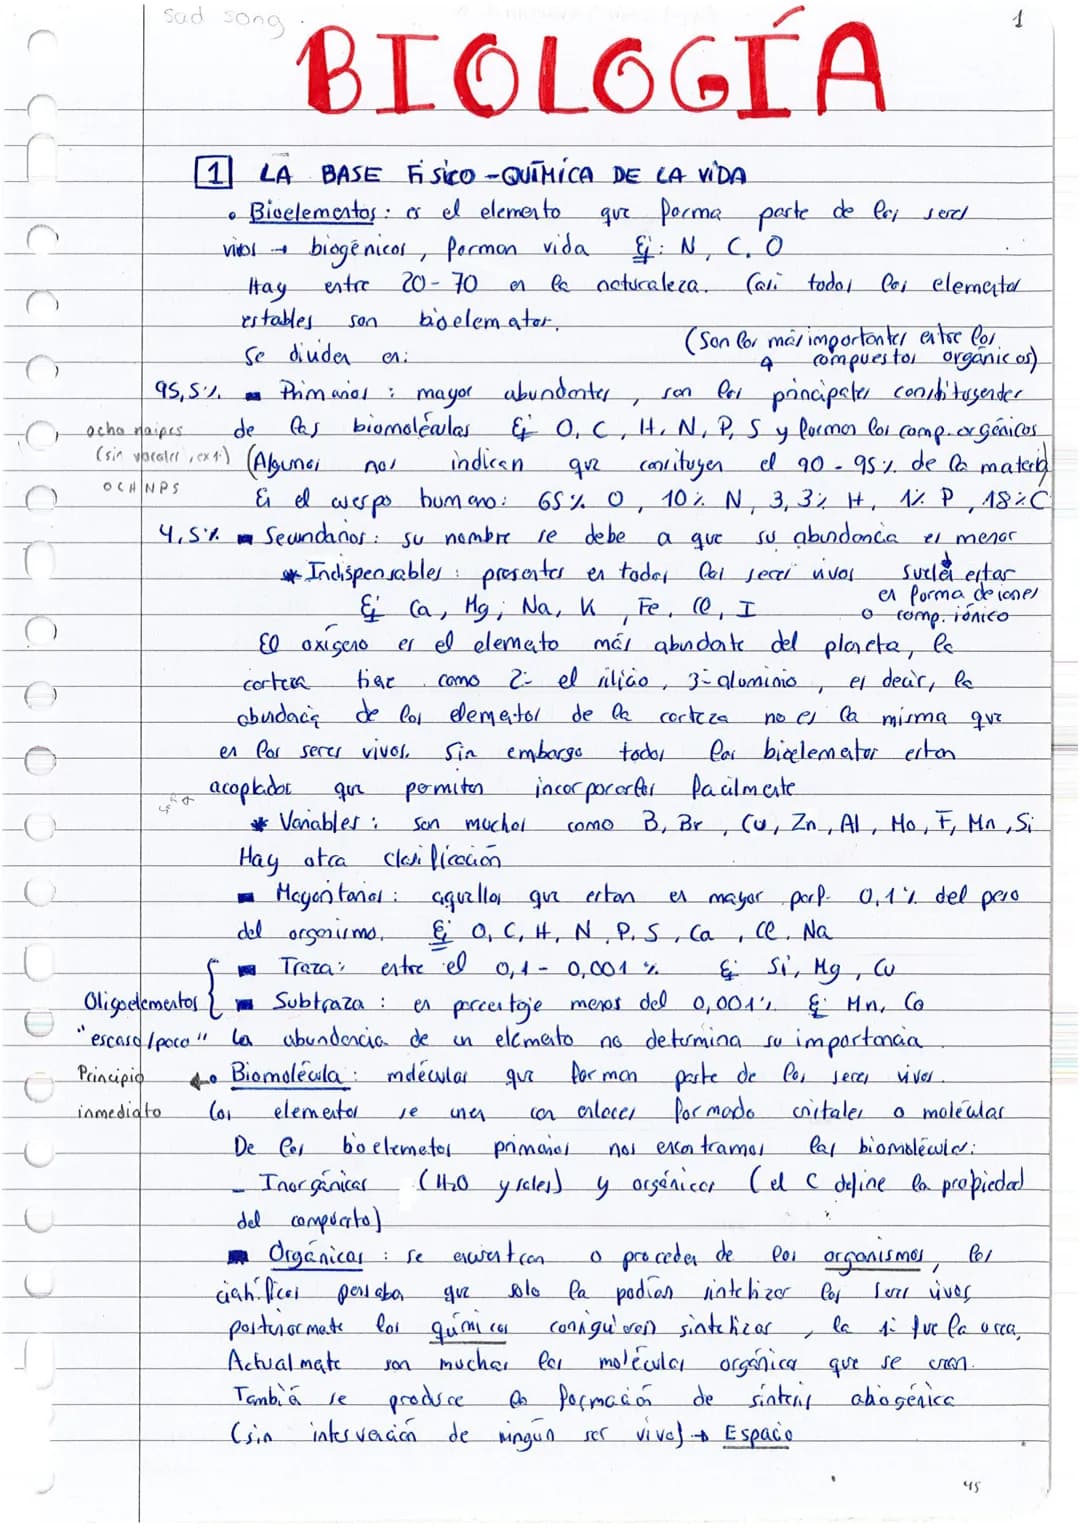 sad song
1
BIOLOGÍA
1 LA BASE FÍSICO-QUÍMICA DE LA VIDA
• Bioelementos: es el elemento que forma parte de los seres
vivos → biogénicos, forman vida Ej: N, C, O
Hay entre 20-70 en la naturaleza. Casi todos los elementos
estables son bioelementos.
Se dividen en:
(Son los más importantes entre los
compuestos orgánicos)
95,5% ▪ Primarios: mayor abundantes, son los principales constituyentes
de las biomoléculas Ej O, C, H, N, P, S y forman los comp. orgánicos
ocho naipes
(sin vocales, ex 1ª)
OCHNPS
(Algunos nos indican que constituyen el 90-95% de la materia)
Ej el cuerpo humano: 65% O, 10% N, 3,3% H, 1% P, 18% C
4,5% ▪ Secundarios: su nombre se debe a que su abundancia es menor
* Indispensables: presentes en todos los seres vivos Suelen estar
en forma de iones
o comp. iónico
Ej Ca, Mg, Na, K, Fe, Cl, I
El oxígeno es el elemento más abundate del planeta, la
corteza tiene como 2º el silicio, 3º aluminio, es decir, la
abundacia de los elementos de la corteza no es la misma que
en los seres vivos. Sin embargo todos los bioelementos estan
acoplados que permiten incorporarles facilmente
* Variables: Son muchos como B, Br, Cu, Zn, Al, Mo, F, Mn, Si
Hay otra clasificación
▪ Mayoritarios: aquellos que estan en mayor porp. 0,1% del peso
del organismo. Ej O, C, H, N, P, S, Ca, Cl, Na
▪ Traza: entre el 0,1 - 0,001 % Ej Si, Mg, Cu
Oligoelementos ▪ Subtraza: en porcentaje menos del 0,001% Ej Mn, Co
"escaso/poco" La abundancia de un elemento no determina su importancia
Principio inmediato
• Biomolécula: moléculas que forman parte de los seres vivos.
Los elementos se unen con enlaces formado cristales o moléculas
De los bioelemetos primarios nos encontramos las biomoléculas:
- Inorgánicas (H2O y sales) y orgánicas (el C define la propiedad
del compuesto)
▪ Orgánicas: se encuentran o proceden de los organismos, los
ciahíficos pensaban que solo la podían sintetizar los seres vivos,
posteriormate los químicos consiguieron sintetizar, la 1ª fue la urea.
Actualmate son muchas las moléculas orgánica que se crean.
También se produce la formación de síntesis abiogénica
(sin intervención de ningún ser vivo) → Espacio
45